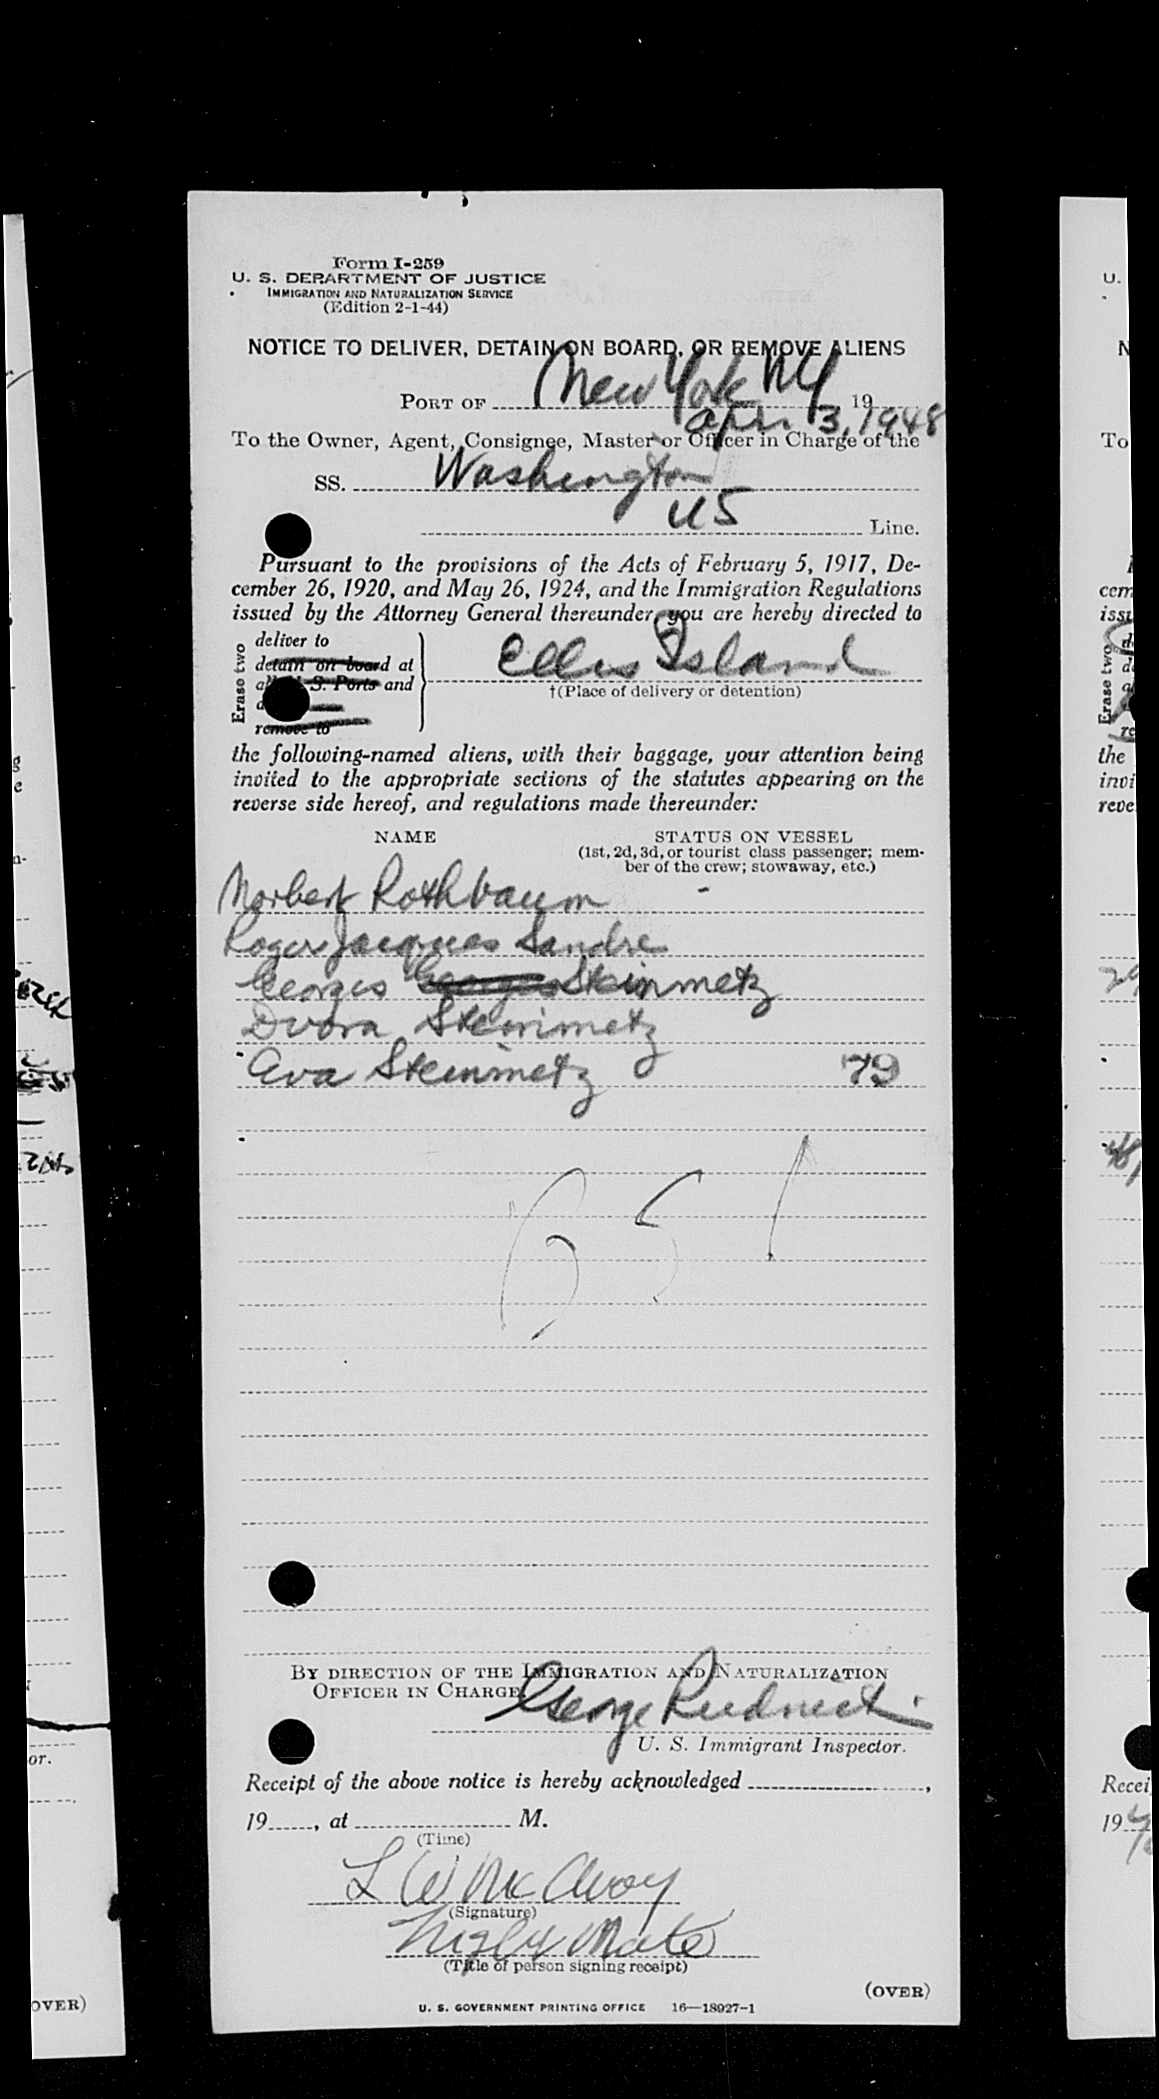 Form I-259
U. S. DEPARTMENT OF JUSTICE
IMMIGRATION AND NATURALIZATION SERVICE
(Edition 2-1-44)
NOTICE TO DELIVER, DETAIN ON BOARD, OR REMOVE ALIENS
PORT OF New York NY 19
Apri 3, 1948
To the Owner, Agent, Consignee, Master or Officer in Charge of the
SS. Washington
US Line.
Pursuant to the provisions of the Acts of February 5, 1917, De-
cember 26, 1920, and May 26, 1924, and the Immigration Regulations
issued by the Attorney General thereunder, you are hereby directed to
Erase two
deliver to
detain on board at
S. Ports and
remove to
Ellis Island
†(Place of delivery or detention)
the following-named aliens, with their baggage, your attention being
invited to the appropriate sections of the statutes appearing on the
reverse side hereof, and regulations made thereunder:
NAME STATUS ON VESSEL
(1st, 2d, 3d, or tourist class passenger; mem-
ber of the crew; stowaway, etc.)
Norbert Rothbaum -
Roger Jacques Sandre
Georges Georges Steinmetz
Dvora Steinmetz
Eva Steinmetz 79
651
BY DIRECTION OF THE IMMIGRATION AND NATURALIZATION
OFFICER IN CHARGE.
George
U. S. Immigrant Inspector.
Receipt of the above notice is hereby acknowledged ,
19 , at M.
(Time)
L W McAvoy
(Signature)
Mate
(Title of person signing receipt)
(OVER)
U. S. GOVERNMENT PRINTING OFFICE 16—18927-1